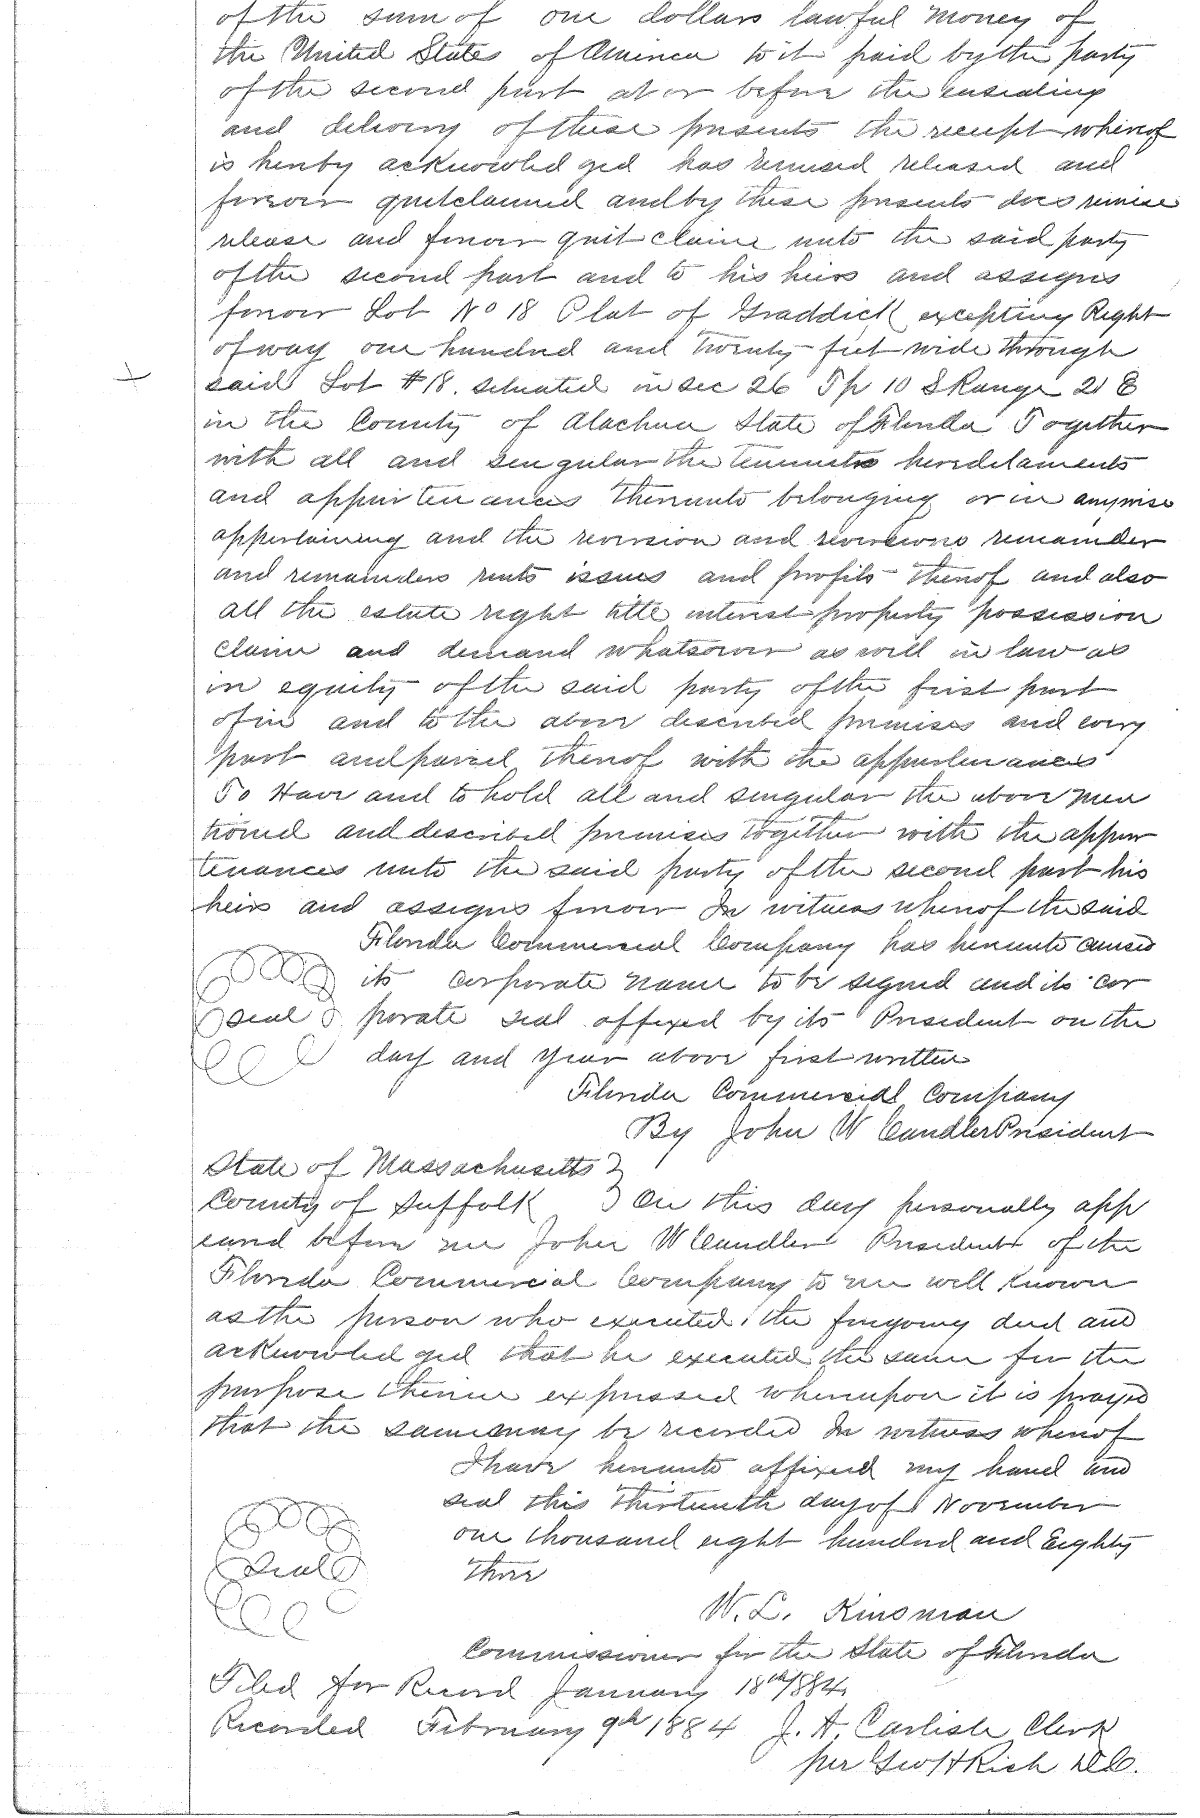 of the sum of one dollars lawful money of
the United States of America to it paid by the party
of the second part at or before the ensealing
and delivery of these presents the receipt whereof
is hereby acknowledged has remised released and
forever quitclaimed and by these presents does remise
release and forever quit claim unto the said party
of the second part and to his heirs and assigns
forever Lot No 18 Plat of Graddick excepting Right
of way one hundred and twenty feet wide through
said Lot #18. situated in sec 26 Tp 10 S Range 21 E
in the County of Alachua State of Florida Together
with all and singular the tenements hereditaments
and appurtenances thereunto belonging or in anywise
appertaining and the reversion and reversions remainder
and remainders rents issues and profits thereof and also
all the estate right title interest property possession
claim and demand whatsoever as well in law as
in equity of the said party of the first part
of in and to the above described premises and every
part and parcel thereof with the appurtenances
To Have and to hold all and singular the above men
tioned and described premises together with the appur
tenances unto the said party of the second part his
heirs and assigns forever In witness whereof the said
Florida Commercial Company has hereunto caused
its corporate name to be signed and its cor
seal porate seal affixed by its President on the
day and year above first written
Florida Commercial Company
By John W Candler President
State of Massachusetts }
County of Suffolk } On this day personally app
eared before me John W Candler President of the
Florida Commercial Company to me well known
as the person who executed the foregoing deed and
acknowledged that he executed the same for the
purpose therein expressed whereupon it is prayed
that the same may be recorded In witness whereof
I have hereunto affixed my hand and
seal this thirteenth day of November
one thousand eight hundred and Eighty
seal three
W. L. Kinsman
Commissioner for the State of Florida
Filed for Record January 18th 1884.
Recorded February 9th 1884 J. A. Carlisle Clerk
per Geo H Rich D.C.